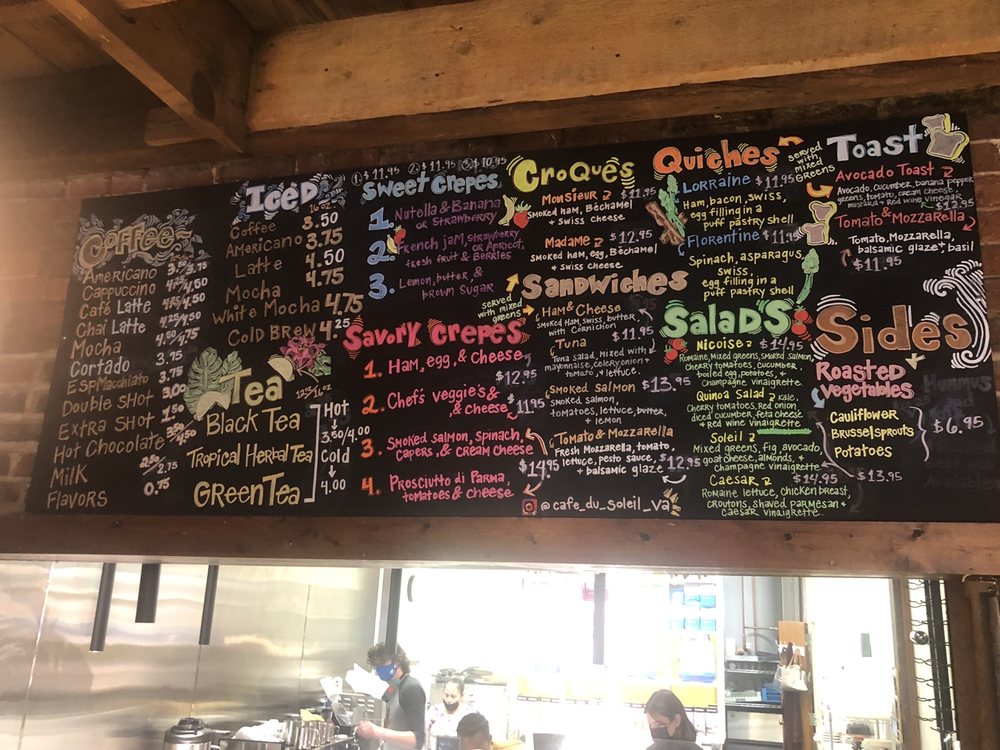 Coffee
Americano
Cappuccino
Café Latte 4.25/4.50
Chai Latte 4.25/4.50
Mocha
Cortado 3.75
Esp Macchiato 3.75
Double Shot 3.00
Extra Shot 1.50
Hot Chocolate
Milk 2.75
Flavors 0.75
Iced
16 oz.
Coffee 3.50
Americano 3.75
Latte 4.50
Mocha 4.75
White Mocha 4.75
Cold Brew 4.25
Tea
12oz/16oz
Black Tea
Tropical Herbal Tea
Green Tea
Hot
3.50/4.00
Cold
4.00
1. $11.95 2. $11.95 3. $10.95
Sweet Crepes
1. Nutella & Banana
or Strawberry
2. French jam, strawberry
or Apricot,
fresh fruit & Berries
3. Lemon, butter, &
brown sugar
Savory Crepes
1. Ham, egg, & Cheese
$12.95
2. Chefs veggie's &
& cheese $11.95
3. Smoked salmon, Spinach,
capers, & cream cheese
$14.95
4. Prosciutto di Parma,
tomatoes & cheese
Croques
Monsieur $11.95
Smoked ham, Béchamel
+ swiss cheese
Madame $12.95
Smoked ham, egg, Béchamel
+ swiss cheese
Sandwiches
served with mixed greens
Ham & Cheese
Smoked ham, swiss, butter,
with Cornichon
$11.95
Tuna
Tuna salad, mixed with
mayonnaise, celery, onion +
tomato, + lettuce.
Smoked Salmon $13.95
Smoked salmon,
tomatoes, lettuce, butter,
+ lemon
Tomato & Mozzarella
Fresh Mozzarella, tomato,
lettuce, pesto sauce, $12.95
+ balsamic glaze
@cafe_du_soleil_va
Quiches
served with mixed Greens
Lorraine $11.95
Ham, bacon, swiss,
egg filling in a
puff pastry shell
Florentine $11.95
Spinach, asparagus,
swiss,
egg filling in a
puff pastry shell
Salad's
Nicoise $14.95
Romaine, mixed greens, smoked salmon,
cherry tomatoes, cucumber,
boiled egg, potatoes, +
Champagne vinaigrette
Quinoa Salad Kale,
Cherry tomatoes, Red onion
diced cucumber, feta cheese
+ Red wine vinaigrette
Soleil
Mixed greens, fig, avocado,
goat cheese, almonds, +
champagne vinaigrette $13.95
Caesar $14.95
Romaine lettuce, chicken breast,
croutons, shaved parmesan +
Caesar vinaigrette
Toast
Avocado Toast
Avocado, cucumber, banana pepper,
greens, tomato, cream cheese,
mustard + Red wine vinegar
$11.95
Tomato & Mozzarella
Tomato, Mozzarella,
balsamic glaze + basil
$11.95
Sides
Roasted
Vegetables
Cauliflower
Brussel sprouts
Potatoes
$6.95
Hummus